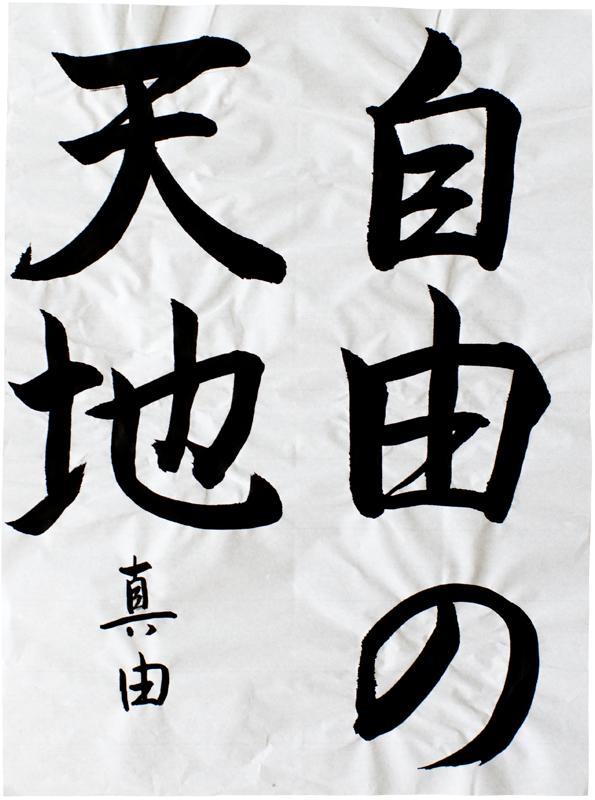 自由の
天地
真由